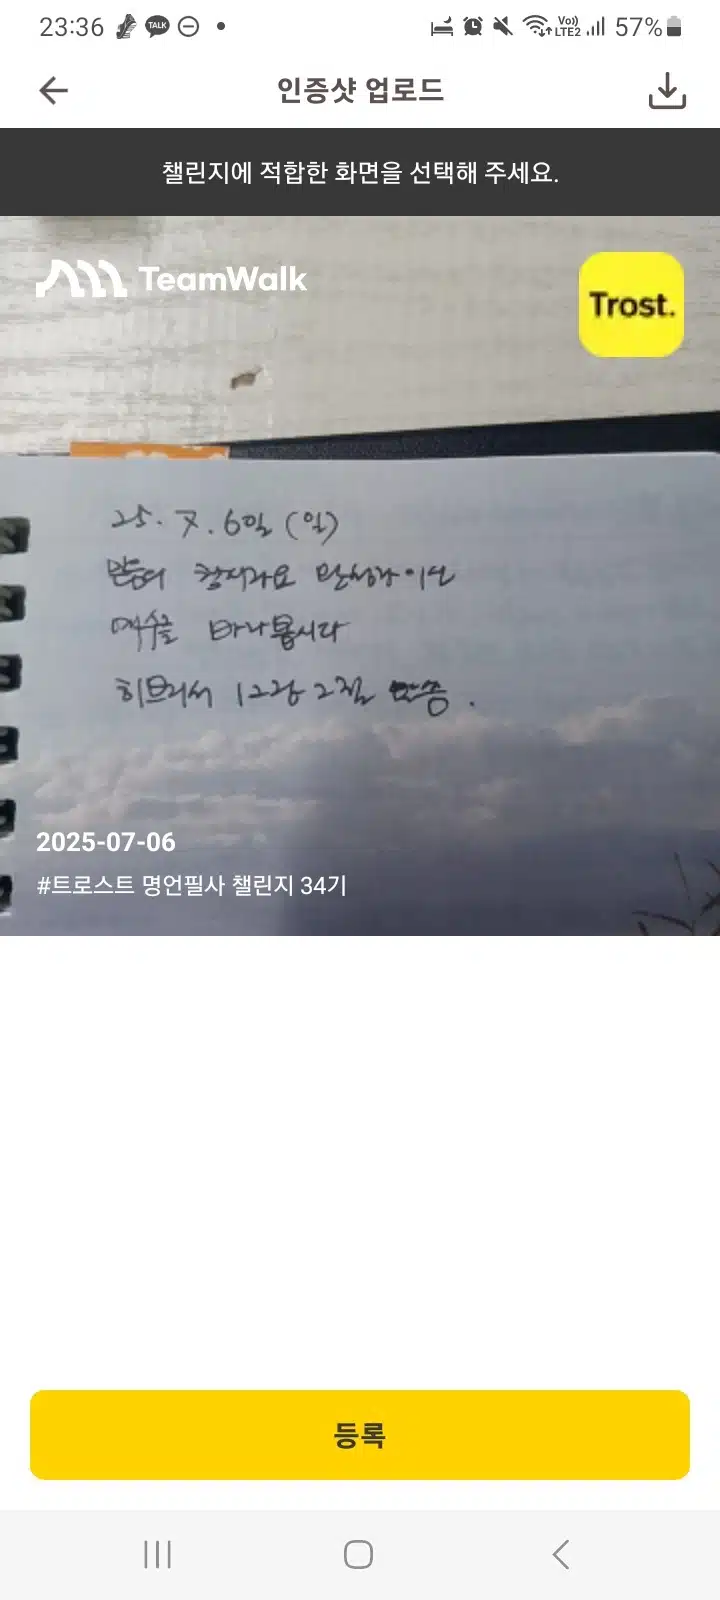 23:36 TALK Vo) LTE2 57%
인증샷 업로드
챌린지에 적합한 화면을 선택해 주세요.
TeamWalk
Trost.
25. 7. 6일 (일)
믿음의 창시자요 완성자이신
예수를 바라봅시다
히브리서 12장 2절 말씀.
2025-07-06
#트로스트 명언필사 챌린지 34기
등록